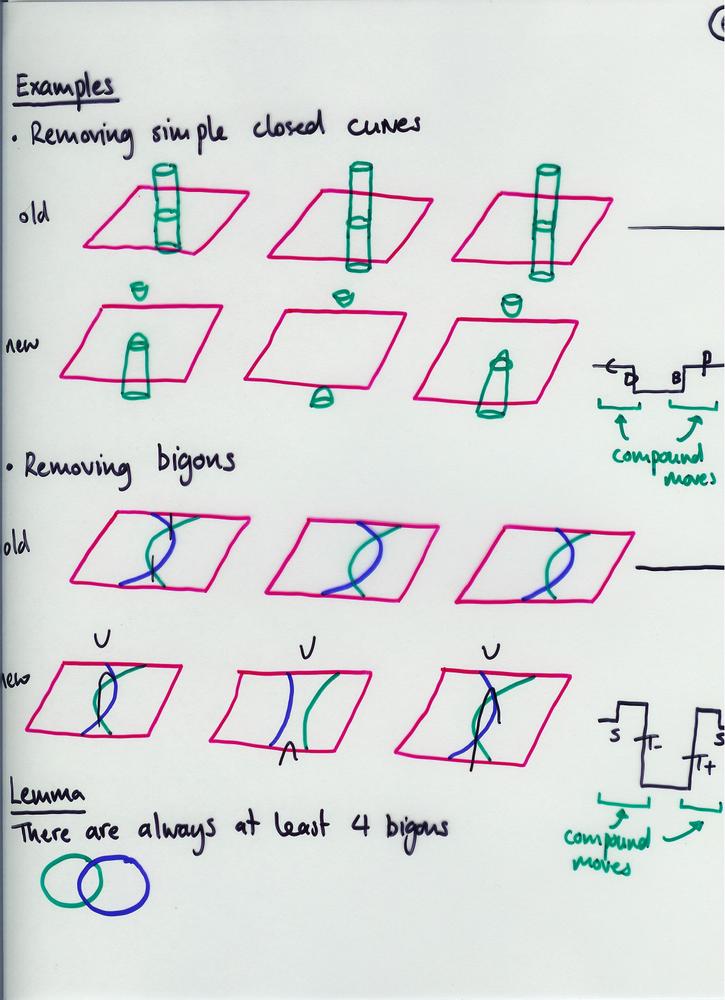 Examples
• Removing simple closed curves
old
new
C D B D
compound
moves
• Removing bigons
old
new
U U U
∩
S T- T+ S
compound
moves
Lemma
There are always at least 4 bigons